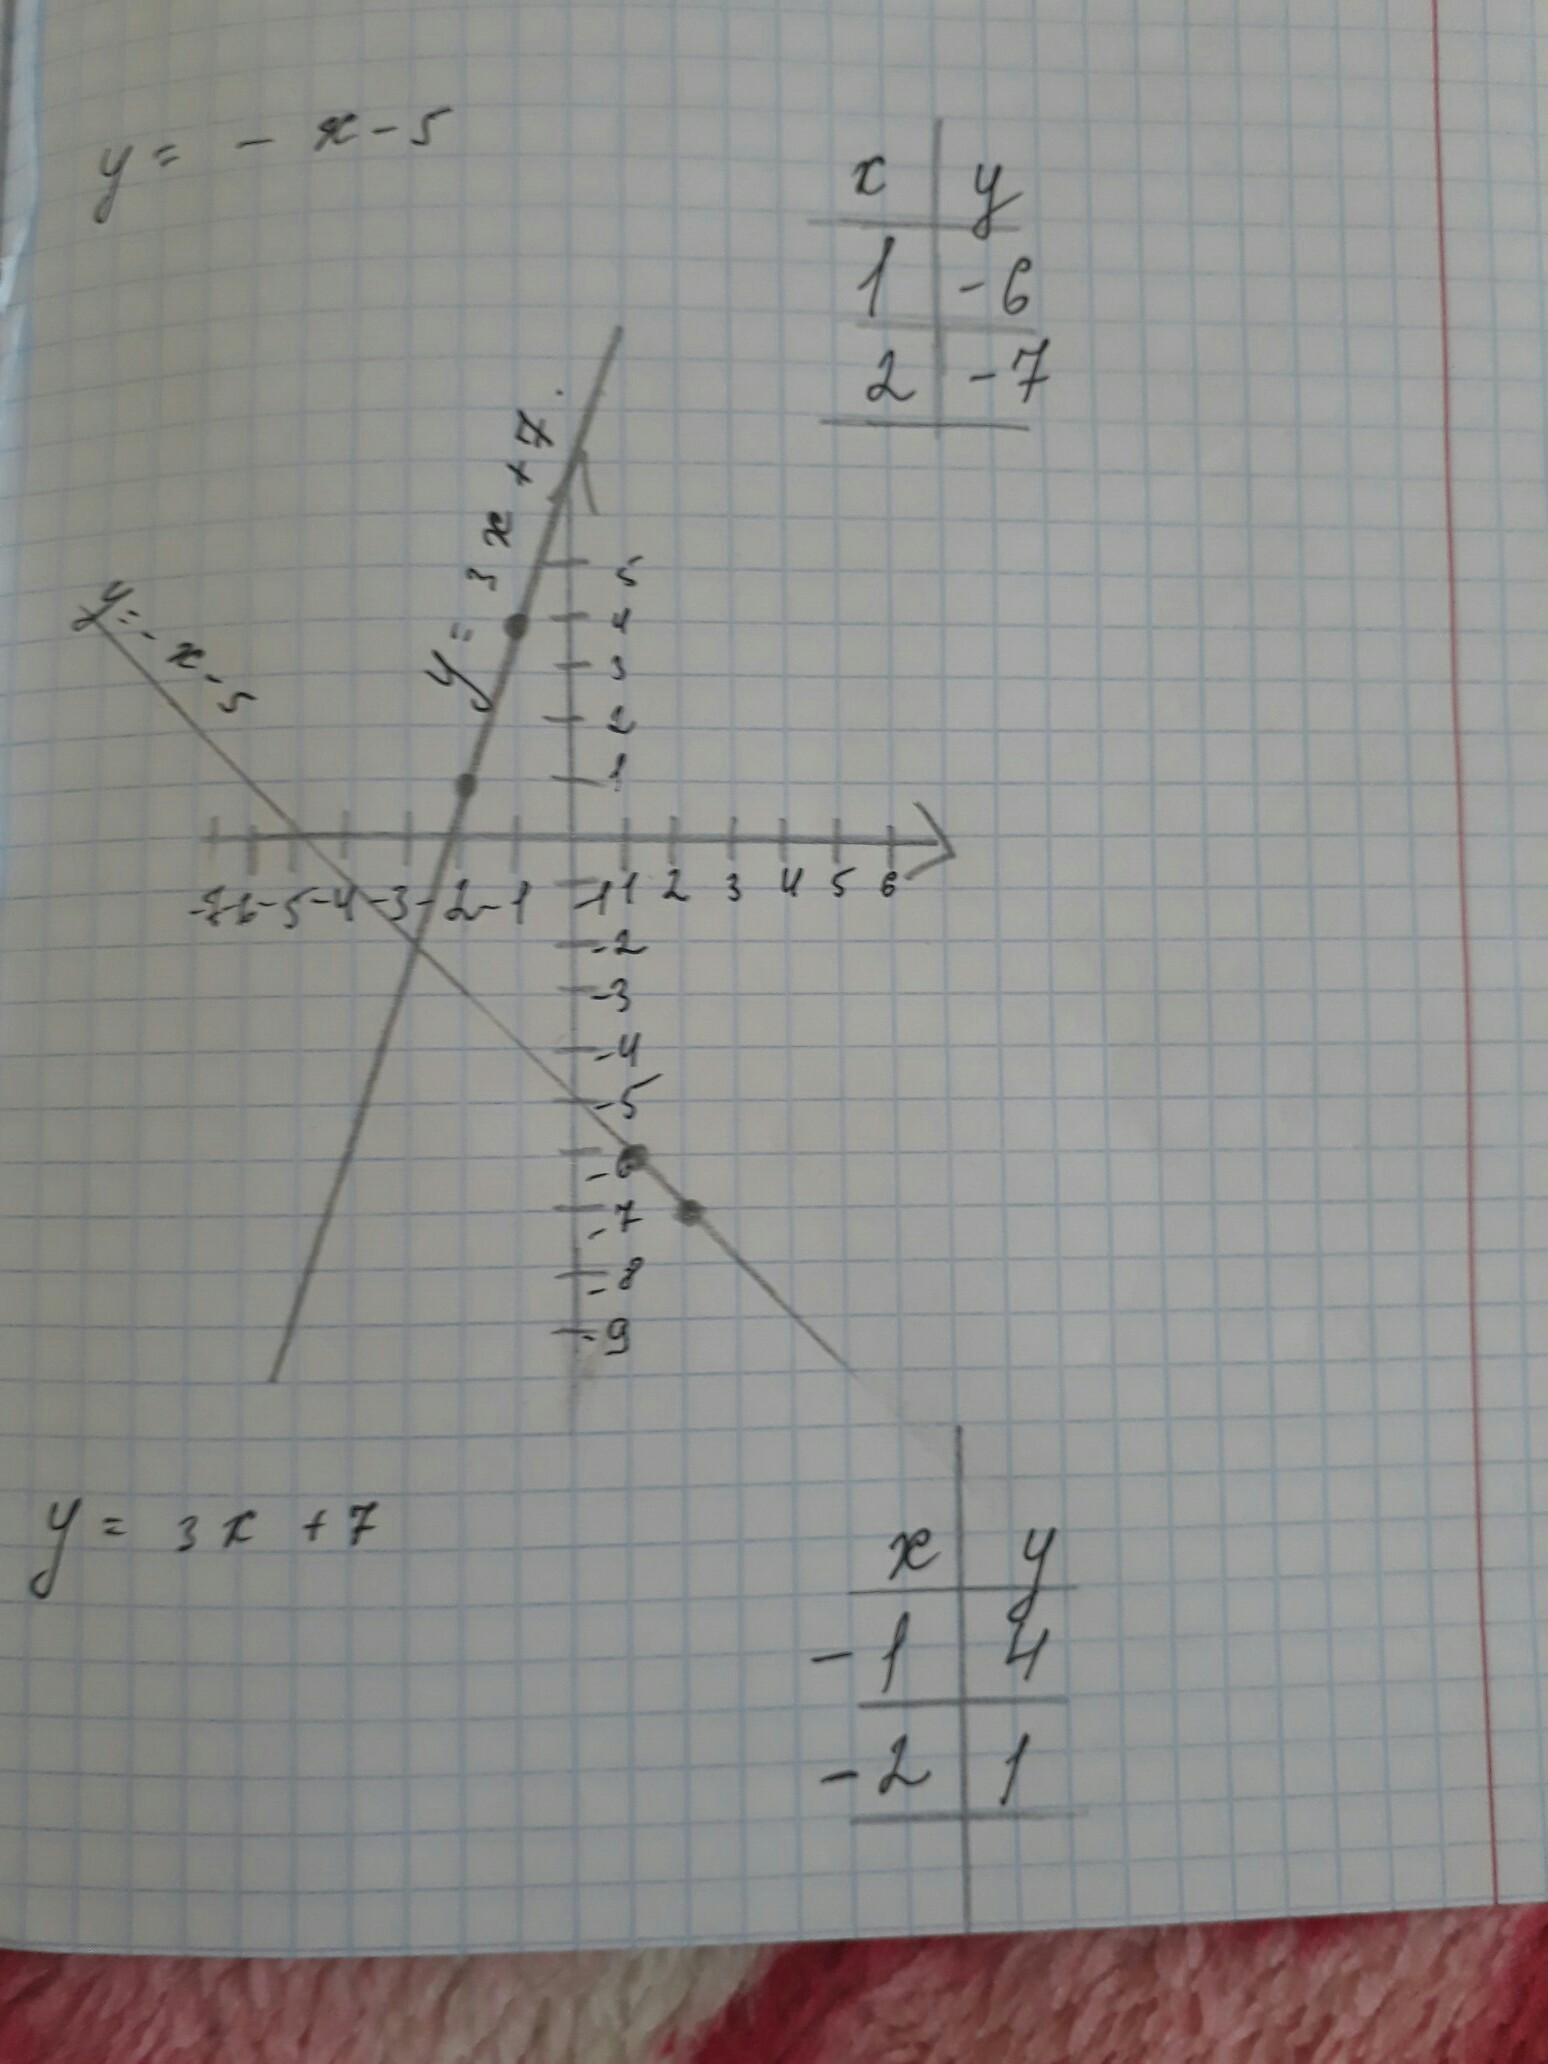 y = - x - 5
x y
1 -6
2 -7
y = 3x + 7
y = - x - 5
5
4
3
2
1
-7 -6 -5 -4 -3 -2 -1 1 2 3 4 5 6
-1
-2
-3
-4
-5
-6
-7
-8
-9
y = 3x + 7
x y
-1 4
-2 1